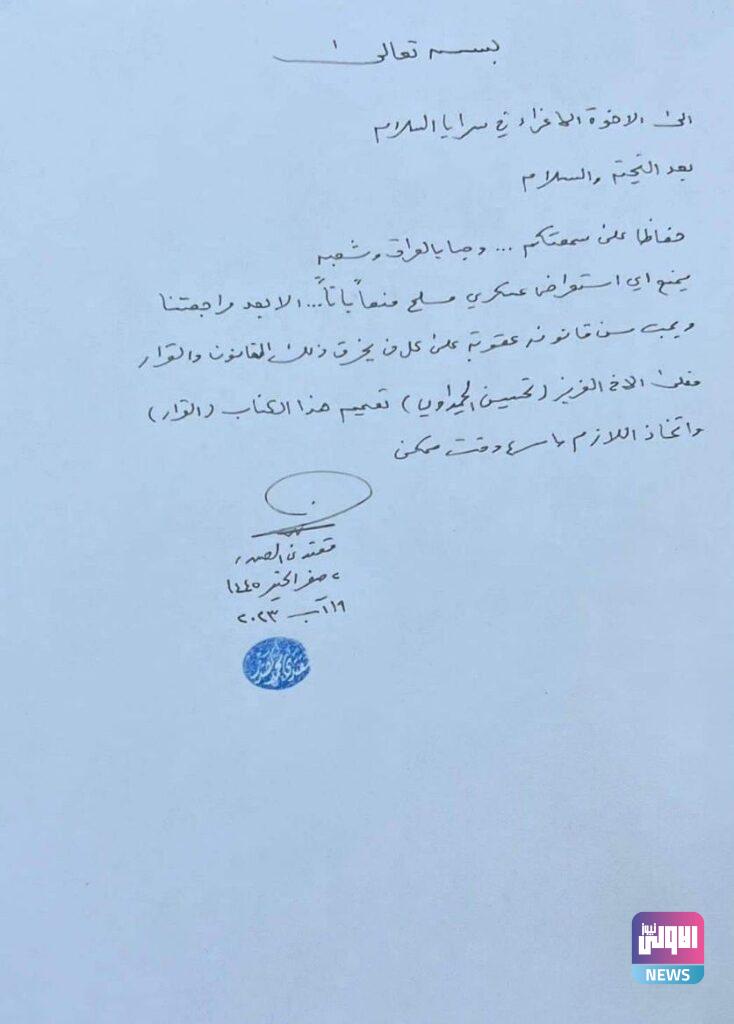 بسمه تعالى
الى الاخوة الاعزاء في سرايا السلام
بعد التحية والسلام
حفاظا على سمعتكم ... وحبا بالعراق وشعبه
يمنع اي استعراض عسكري مسلح منعاً باتاً... الا بعد مراجعتنا
ويجب سن قانون عقوبة على كل من يخرق ذلك القانون والقرار
فعلى الاخ العزيز (تحسين الحميداوي) تعميم هذا الكتاب (القرار)
واتخاذ اللازم باسرع وقت ممكن
مقتدى الصدر
٢ صفر الخير ١٤٤٥
١٩ آب ٢٠٢٣
الاولى نيوز
NEWS